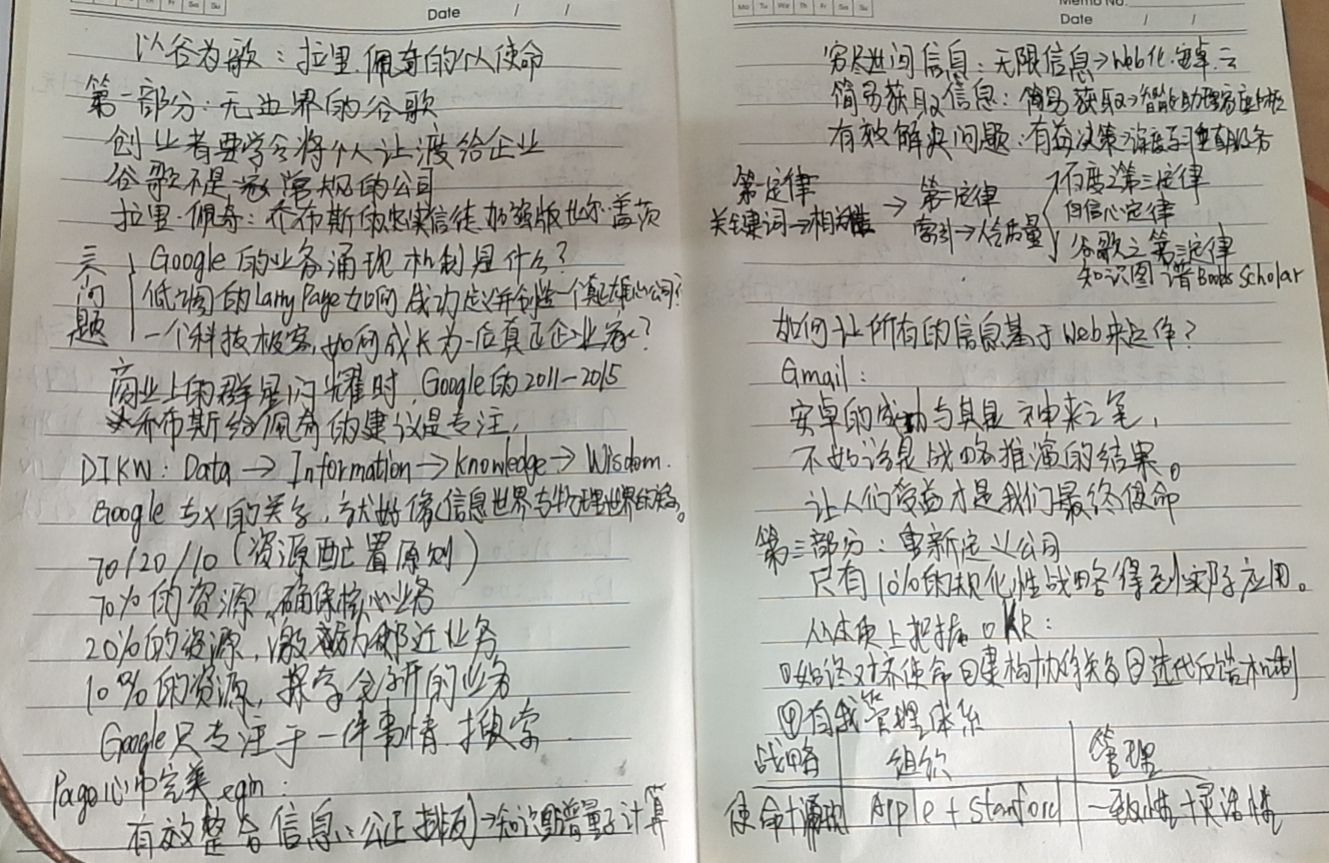 Mo Tu We Th Fr Sa Su
Date / /
以谷为歌：拉里.佩奇的个人使命
第一部分：无边界的谷歌
创业者要学会将个人让渡给企业
谷歌不是 常规的公司
拉里·佩奇：乔布斯的忠实信徒,加强版比尔·盖茨
三问题
Google的业务涌现机制是什么？
低调的Larry Page如何成功定义并创造一个真正雄心公司？
一个科技极客,如何成长为一后真正企业家？
商业上的群星闪耀时,Google的2011-2015
乔布斯给佩奇的建议是专注,
DIKW: Data → Information → knowledge → Wisdom.
Google与X的关系,就好像信息世界与物理世界的 。
70/20/10（资源配置原则）
70%的资源,确保核心业务
20%的资源,激励邻近业务
10%的资源,探索全新的业务
Google只专注于一件事情,搜索
Page心中完美egin:
有效整合信息：公正排版→知识图谱量子计算
Memo No.
Mo Tu We Th Fr Sa Su
Date / /
穷尽世间信息：无限信息→Web化.安卓.云
简易获取信息：简易获取→智能助理
有效解决问题：有益决策→深度学习垂直服务
第一定律
关键词→相关性
→
第二定律
索引→人气质量
百度之第三定律
自信心定律
谷歌之第三定律
知识图谱Books Scholar
如何让所有的信息基于Web来运作？
Gmail：
安卓的成功与其是神来之笔,
不如说是战略推演的结果。
让人们受益才是我们最终使命
第三部分：重新定义公司
只有10%的规化性战略得到实际应用。
从本质上把握OKR：
①始终对齐使命②建构协作关系③迭代反馈机制
④自我管理体系
战略 组织 管理
使命+涌现 Apple + Stanford 一致性+灵活性